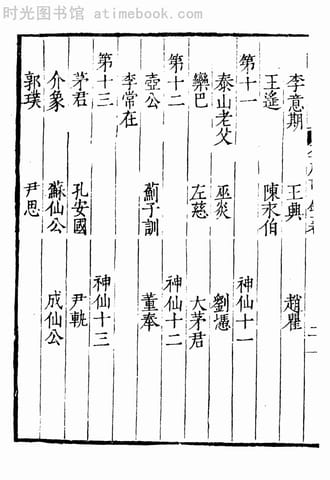 时光图书馆 - www.atimebook.com
李意期 王興 趙瞿
王遙 陳永伯
第十一 神仙十一
泰山老父 巫炎 劉憑
欒巴 左慈 大茅君
第十二 神仙十二
壺公 薊子訓 董奉
李常在
第十三 神仙十三
茅君 孔安國 尹軌
介象 蘇仙公 成仙公
郭璞 尹思